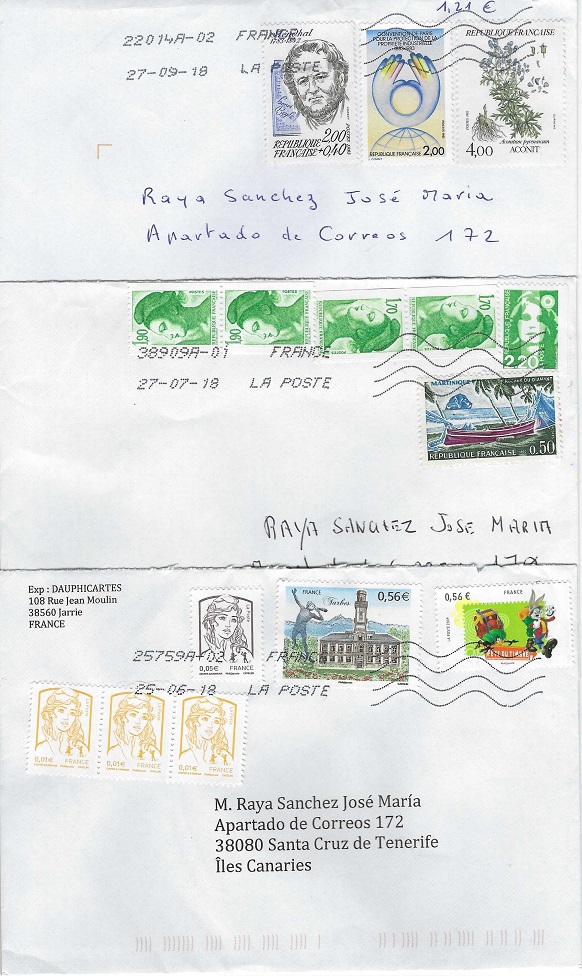 1,21 €
22014A-02 FRANCE
27-09-18 LA POSTE
1783-1842
RÉPUBLIQUE FRANÇAISE
2,00 +0,40
CONVENTION DE PARIS
POUR LA PROTECTION DE LA
PROPRIÉTÉ INDUSTRIELLE
1883-1983
RÉPUBLIQUE FRANÇAISE 2,00
REPUBLIQUE FRANÇAISE
4,00
Aconitum pyrenaicum
ACONIT
Raya Sanchez José Maria
Apartado de Correos 172
1,90
1,90
1,70
1,70
RÉPUBLIQUE FRANÇAISE
2,20
LA POSTE
38909A-01 FRANCE
27-07-18 LA POSTE
MARTINIQUE ROCHER DU DIAMANT
RÉPUBLIQUE FRANÇAISE 0,50
RAYA SANCHEZ JOSE MARIA
Exp : DAUPHICARTES
108 Rue Jean Moulin
38560 Jarrie
FRANCE
0,05€ FRANCE
FRANCE
0,56€
Tarbes
0,56€ FRANCE
LA POSTE 2009
FÊTE DU TIMBRE
25759A-02 FRANC
25-06-18 LA POSTE
0,01€ FRANCE
0,01€ FRANCE
0,01€ FRANCE
M. Raya Sanchez José María
Apartado de Correos 172
38080 Santa Cruz de Tenerife
Îles Canaries